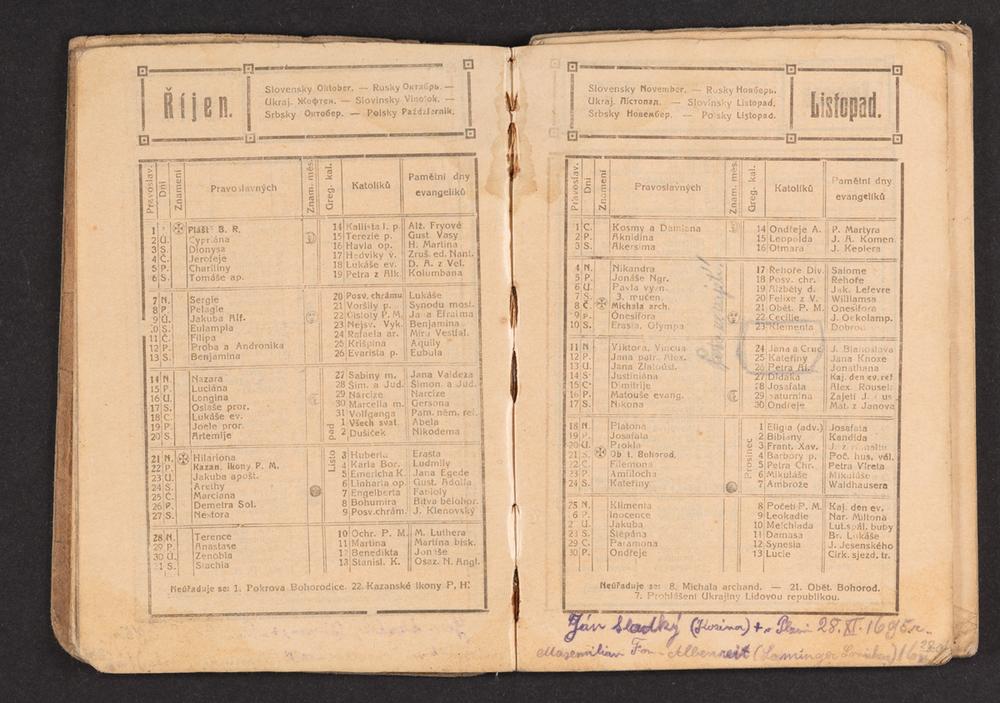 Říjen.
Slovensky Oktober. — Rusky Октябрь. —
Ukraj. Жофтен. — Slovinsky Vinotok. —
Srbsky Октобер. — Polsky Październik.
Pravoslav. Dni Znamení Pravoslavných Znam. měs. Greg. kal. Katolíků Pamětní dny evangelíků
1 Plášt B. R. 14 Kallista I. p. Alž. Fryové
2 Ú. Cypriána 15 Terezie p. Gust Vasy
3 S. Dionysa 16 Havla op. H. Martina
4 Č. Jeroteje 17 Hedviky v. Zruš. ed. Nant.
5 P. Charitiny 18 Lukáše ev. D. A. z Vel.
6 S. Tomáše ap. 19 Petra z Alk. Kolumbana
7 N. Sergie 20 Posv. chrámu Lukáše
8 P. Pelagie 21 Voršily p. Synodu mosl.
9 Ú. Jakuba Alf. 22 Cistoty P. M. Ja a Efraima
10 S. Eulampia 23 Nejsv. Vyk. Benjamina
11 Č. Filipa 24 Rafaela ar. Míru Vestfal.
12 P. Proba a Andronika 25 Krišpína Aquily
13 S. Benjamina 26 Evarista p. Eubula
14 N. Nazara 27 Sabiny m. Jana Valdeza
15 P. Luciána 28 Šim. a Jud. Šimon. a Jud.
16 Ú. Longina 29 Narcize Narcize
17 S. Oslaše pror. 30 Marcella m. Gersona
18 Č. Lukáše ev. 31 Volfganga Pam. ném. ref.
19 P. Joele pror. 1 Všech svat. Abela
20 S. Artemije 2 Dušiček Nikodema
Listopad
21 N. Hilariona 3 Huberta Erasta
22 P. Kazan. Ikony P. M. 4 Karla Bor. Ludmily
23 Ú. Jakuba apošt. 5 Emericha K. Jana Egede
24 S. Arethy 6 Linharta op. Gust. Adolfa
25 Č. Marciana 7 Engelberta Fabioly
26 P. Demetra Sol. 8 Bohumíra Bitva bělohor.
27 S. Nestora 9 Posv. chrám. J. Klenovský
28 N. Terence 10 Ochr. P. M. M. Luthera
29 P. Anastase 11 Martina Martina bisk.
30 Ú. Zenobia 12 Benedikta Jonáše
31 S. Stachia 13 Stanisl. K. Osaz. N. Angl.
Neúřaduje se: 1. Pokrova Bohorodice. 22. Kazanské ikony P. M.
Listopad.
Slovensky November. — Rusky Нояберь.
Ukraj. Лістопад. — Slovinsky Listopad.
Srbsky Новембер. — Polsky Listopad.
Pravoslav. Dni Znamení Pravoslavných Znam. měs. Greg. kal. Katolíků Pamětní dny evangelíků
1 Č. Kosmy a Damiana 14 Ondřeje A. P. Martyra
2 P. Akindina 15 Leopolda J. A. Komen.
3 S. Akersima 16 Otmara J. Keplera
4 N. Nikandra 17 Řehoře Div. Salome
5 P. Jonáše Ngr. 18 Posv. chr. Řehoře
6 Ú. Pavla vyzn. 19 Alžběty d. Jak. Lefevre
7 S. 3. mučen. 20 Felixe z V. Williamsa
8 Č. Michala arch. 21 Obět. P. M. Onesifora
9 P. Onesifora 22 Cecilie J. Oekolamp.
10 S. Erasta, Olympa 23 Klementa Dobrou
11 N. Viktora, Vincua 24 Jana a Cruc J. Blahoslava
12 P. Jana patr. Alex. 25 Kateřiny Jana Knoxe
13 Ú. Jana Zlatoúst. 26 Petra Al. Jonathana
14 S. Justiniána 27 Didaka Kaj. den ev. ref
15 Č. Dimitrije 28 Josafata Alex. Roussel
16 P. Matouše evang. 29 Saturnina Zajetí J.
17 S. Nikona 30 Ondřeje Mat. z Janova
Prosinec
18 N. Platona 1 Eligia (adv.) Josafata
19 P. Josafata 2 Bibiany Kandida
20 Ú. Prokla 3 Frant. Xav.
21 S. Ob t. Bohorod. 4 Barbory p. Poč. hus. vál.
22 Č. Filemona 5 Petra Chr. Petra Vireta
23 P. Amfilocha 6 Mikuláše Mikuláše
24 S. Kateřiny 7 Ambrože Waldhausera
25 N. Klimenta 8 Početí P. M. Kaj. den ev.
26 P. Inocence 9 Leokadie Nar. Miltona
27 Ú. Jakuba 10 Melchiada Lut. spál. buly
28 S. Štěpána 11 Damasa Br. Lukáše
29 Č. Paramona 12 Synesia J. Jesenského
30 P. Ondřeje 13 Lucie Cirk. sjezd. tr.
Neúřaduje se: 8. Michala archand. — 21. Obět. Bohorod.
7. Prohlášení Ukrajiny Lidovou republikou.
Ján Sladký (Kozina) + Plzni 28. XI. 1695
Maxmilian Albenreit (Laminger